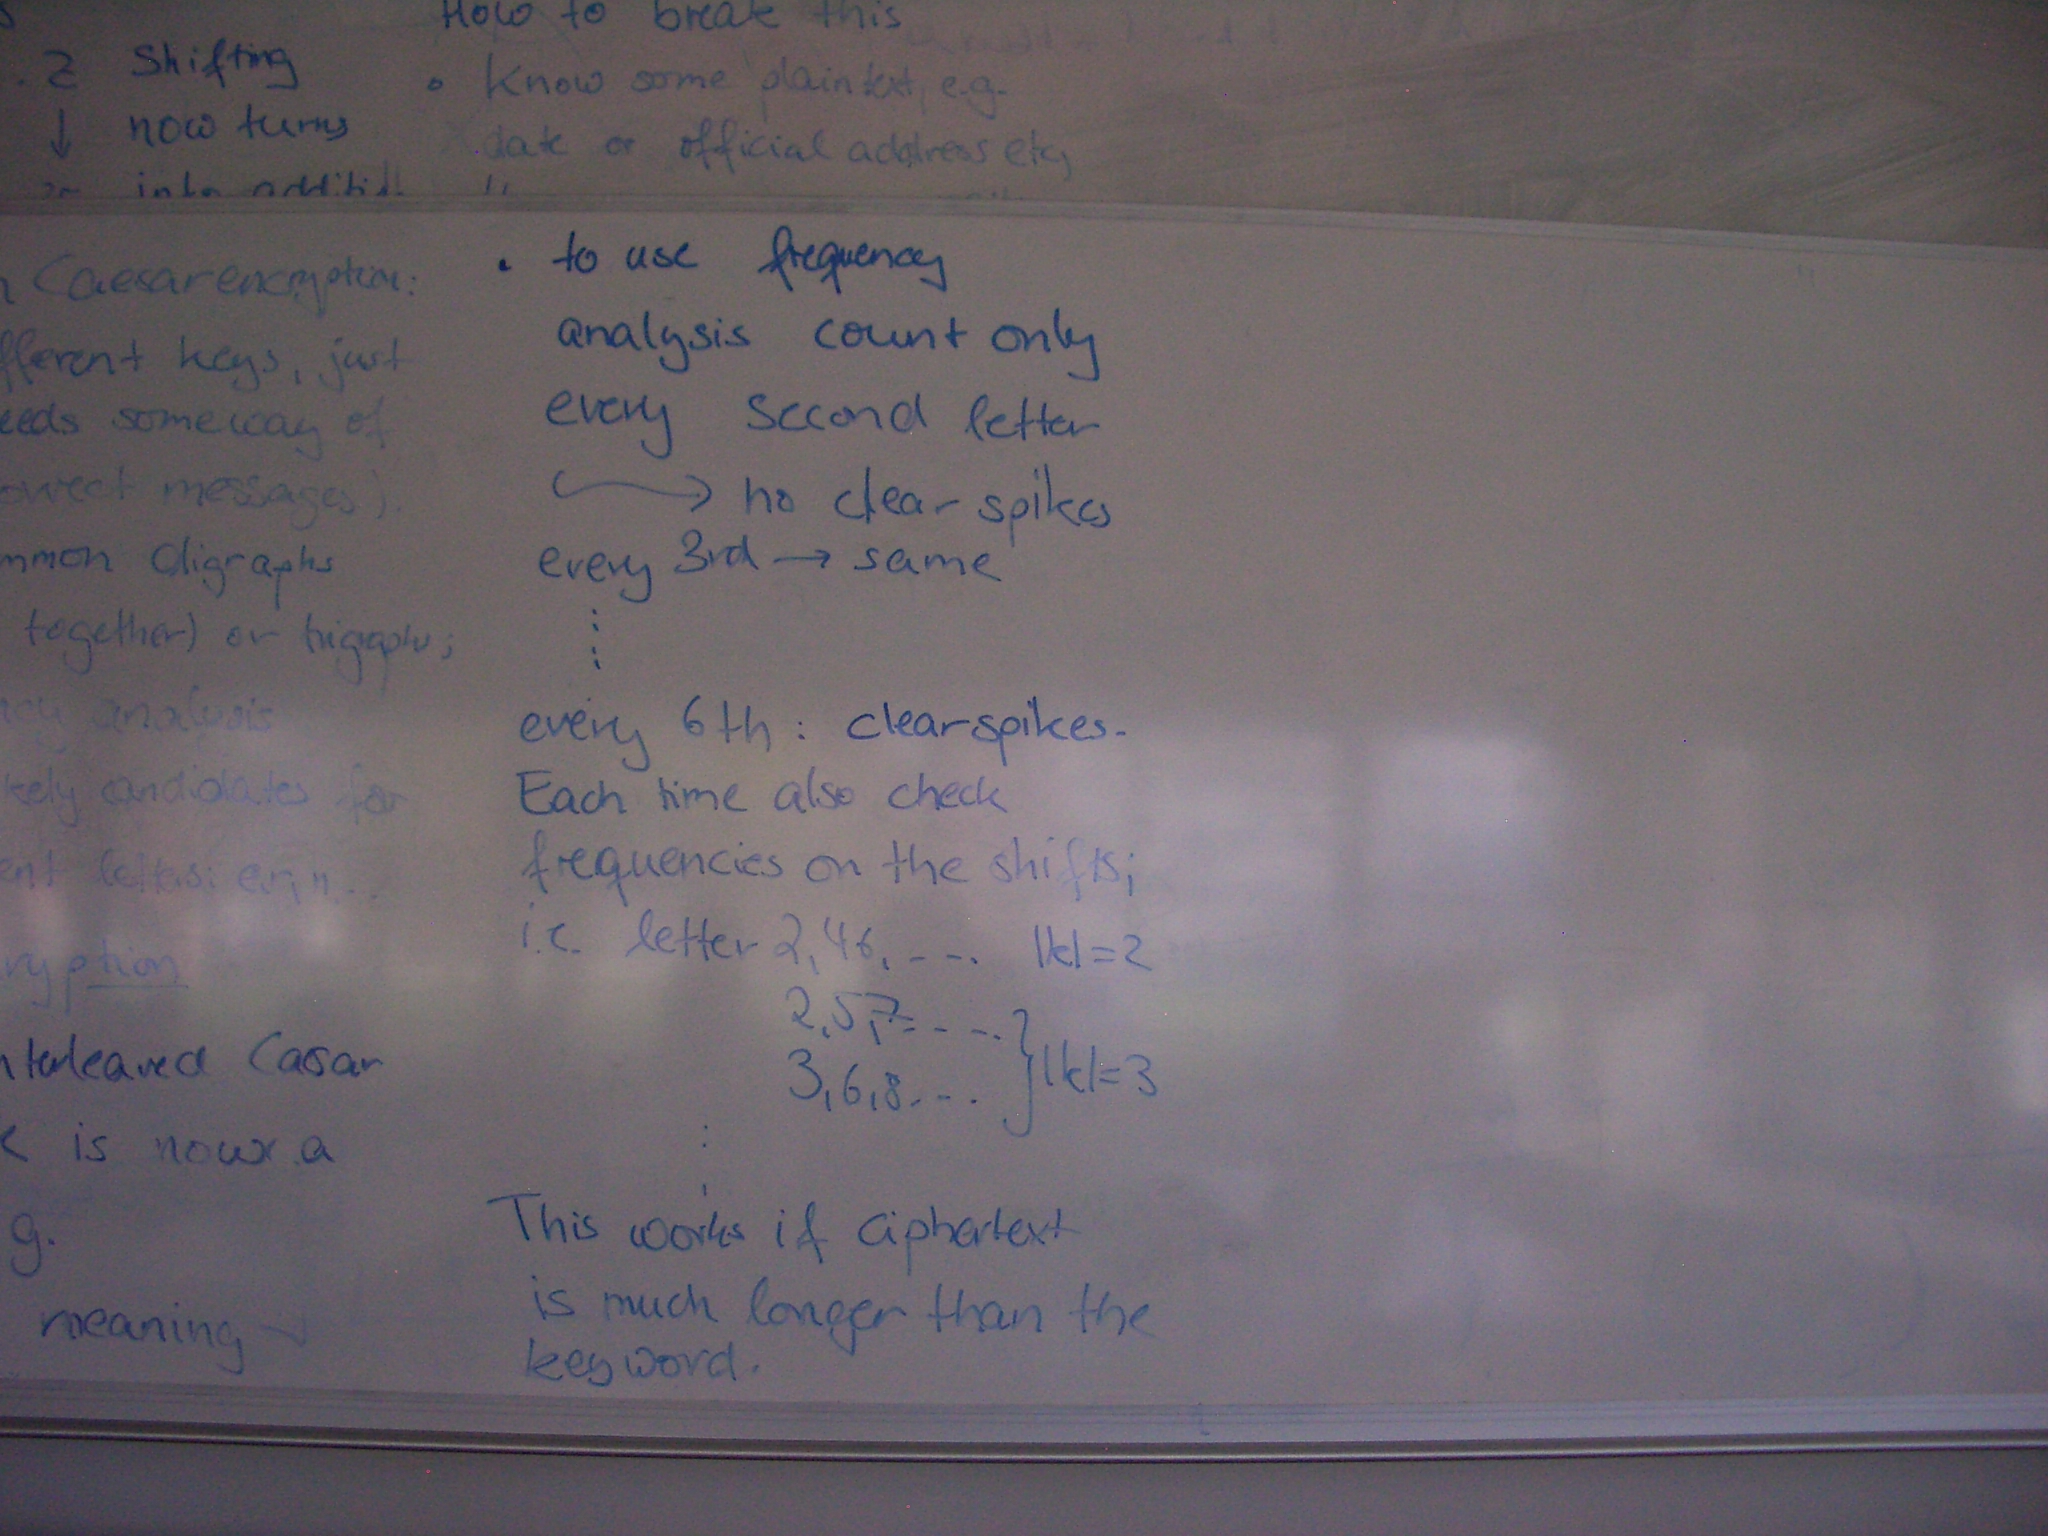 How to break this
2 Shifting
• Know some plaintext, e.g.
↓ now turns
date or official address etc,
into
• to use frequency
analysis count only
every second letter
→ no clear spikes
every 3rd → same
⋮
every 6th: clear spikes.
Each time also check
frequencies on the shifts;
i.e. letter 2,4,6, ---. |k|=2
2,5,7 ---. } |k|=3
3,6,8 ---.
⋮
This works if ciphertext
is much longer than the
keyword.
Caesar encryption:
fferent keys, just
eeds some way of
orrect messages).
mmon digraphs
together) or trigraphs;
ncy analysis
kely candidates for
ent letters: e,r,i,n...
ryption
nterleaved Caesar
is now a
g.
meaning